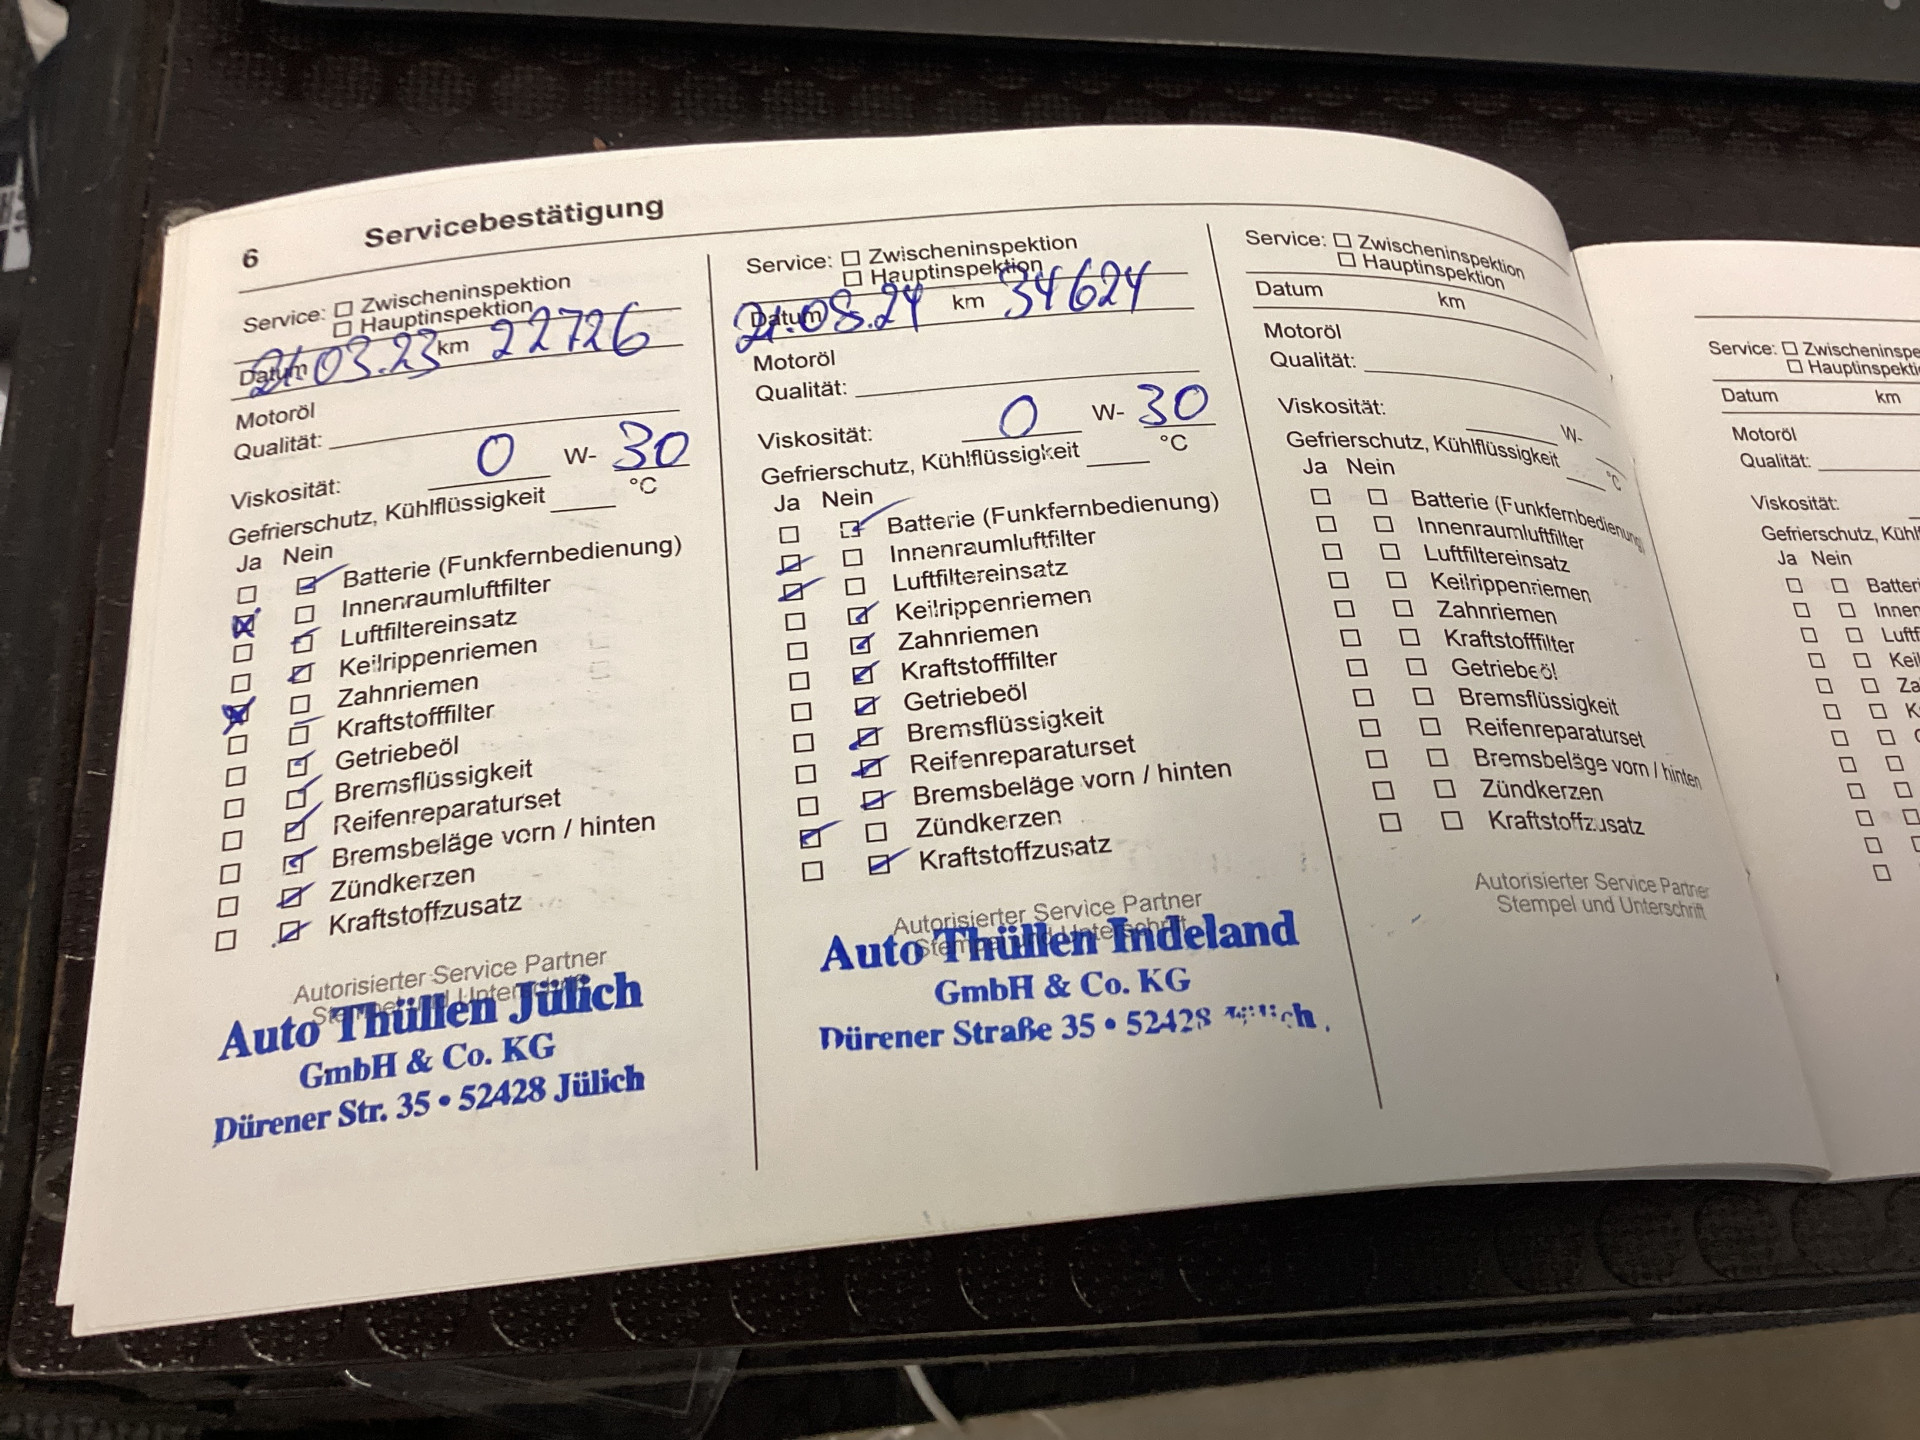 6 Servicebestätigung
Service: Zwischeninspektion
Hauptinspektion
Datum 21.03.23 km 22726
Motoröl
Qualität:
Viskosität: 0 W- 30
Gefrierschutz, Kühlflüssigkeit °C
Ja Nein
Batterie (Funkfernbedienung)
Innenraumluftfilter
Luftfiltereinsatz
Keilrippenriemen
Zahnriemen
Kraftstofffilter
Getriebeöl
Bremsflüssigkeit
Reifenreparaturset
Bremsbeläge vorn / hinten
Zündkerzen
Kraftstoffzusatz
Autorisierter Service Partner
Stempel und Unterschrift
Auto Thüllen Jülich
GmbH & Co. KG
Dürener Str. 35 • 52428 Jülich
Service: Zwischeninspektion
Hauptinspektion
Datum 21.08.24 km 34624
Motoröl
Qualität:
Viskosität: 0 W- 30
Gefrierschutz, Kühlflüssigkeit °C
Ja Nein
Batterie (Funkfernbedienung)
Innenraumluftfilter
Luftfiltereinsatz
Keilrippenriemen
Zahnriemen
Kraftstofffilter
Getriebeöl
Bremsflüssigkeit
Reifenreparaturset
Bremsbeläge vorn / hinten
Zündkerzen
Kraftstoffzusatz
Autorisierter Service Partner
Stempel und Unterschrift
Auto Thüllen Indeland
GmbH & Co. KG
Dürener Straße 35 • 52428 Jülich
Service: Zwischeninspektion
Hauptinspektion
Datum km
Motoröl
Qualität:
Viskosität: W-
Gefrierschutz, Kühlflüssigkeit °C
Ja Nein
Batterie (Funkfernbedienung)
Innenraumluftfilter
Luftfiltereinsatz
Keilrippenriemen
Zahnriemen
Kraftstofffilter
Getriebeöl
Bremsflüssigkeit
Reifenreparaturset
Bremsbeläge vorn / hinten
Zündkerzen
Kraftstoffzusatz
Autorisierter Service Partner
Stempel und Unterschrift
Service: Zwischeninspe
Hauptinspekti
Datum km
Motoröl
Qualität:
Viskosität:
Gefrierschutz, Kühlf
Ja Nein
Batteri
Innen
Luftf
Keil
Za
K